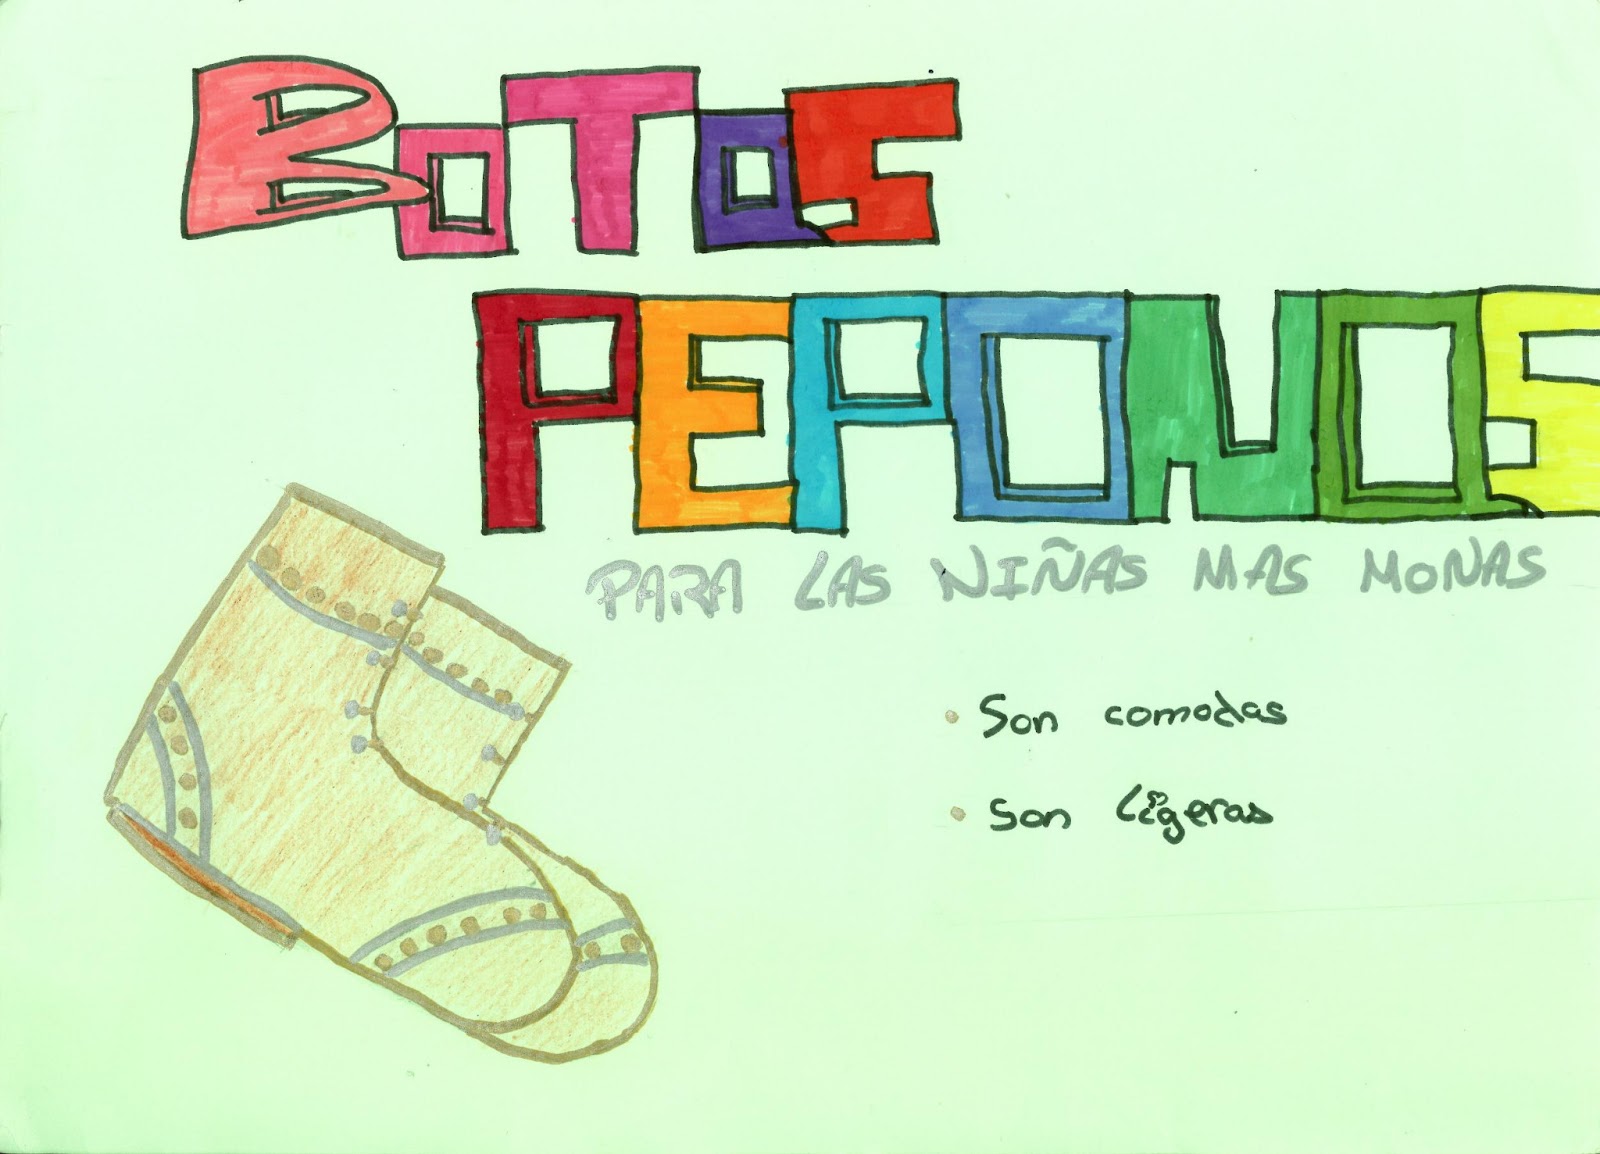 BOTOS
PEPONOS
PARA LAS NIÑAS MAS MONAS
• Son comodas
• Son ligeras